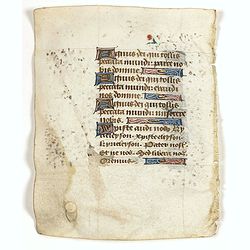 Agnus dei qui tollis
peccata mundi: parce no
bis domine.
Agnus dei qui tollis
peccata mundi: exaudi
nos domine.
Agnus dei qui tollis
peccata mundi: miserere
nobis.
Xpiste audi nos. Ky
rieleyson. Xpisteeleyson.
Kyrieleyson. Pater nost
Et ne nos. Sed libera nos
Oremus.